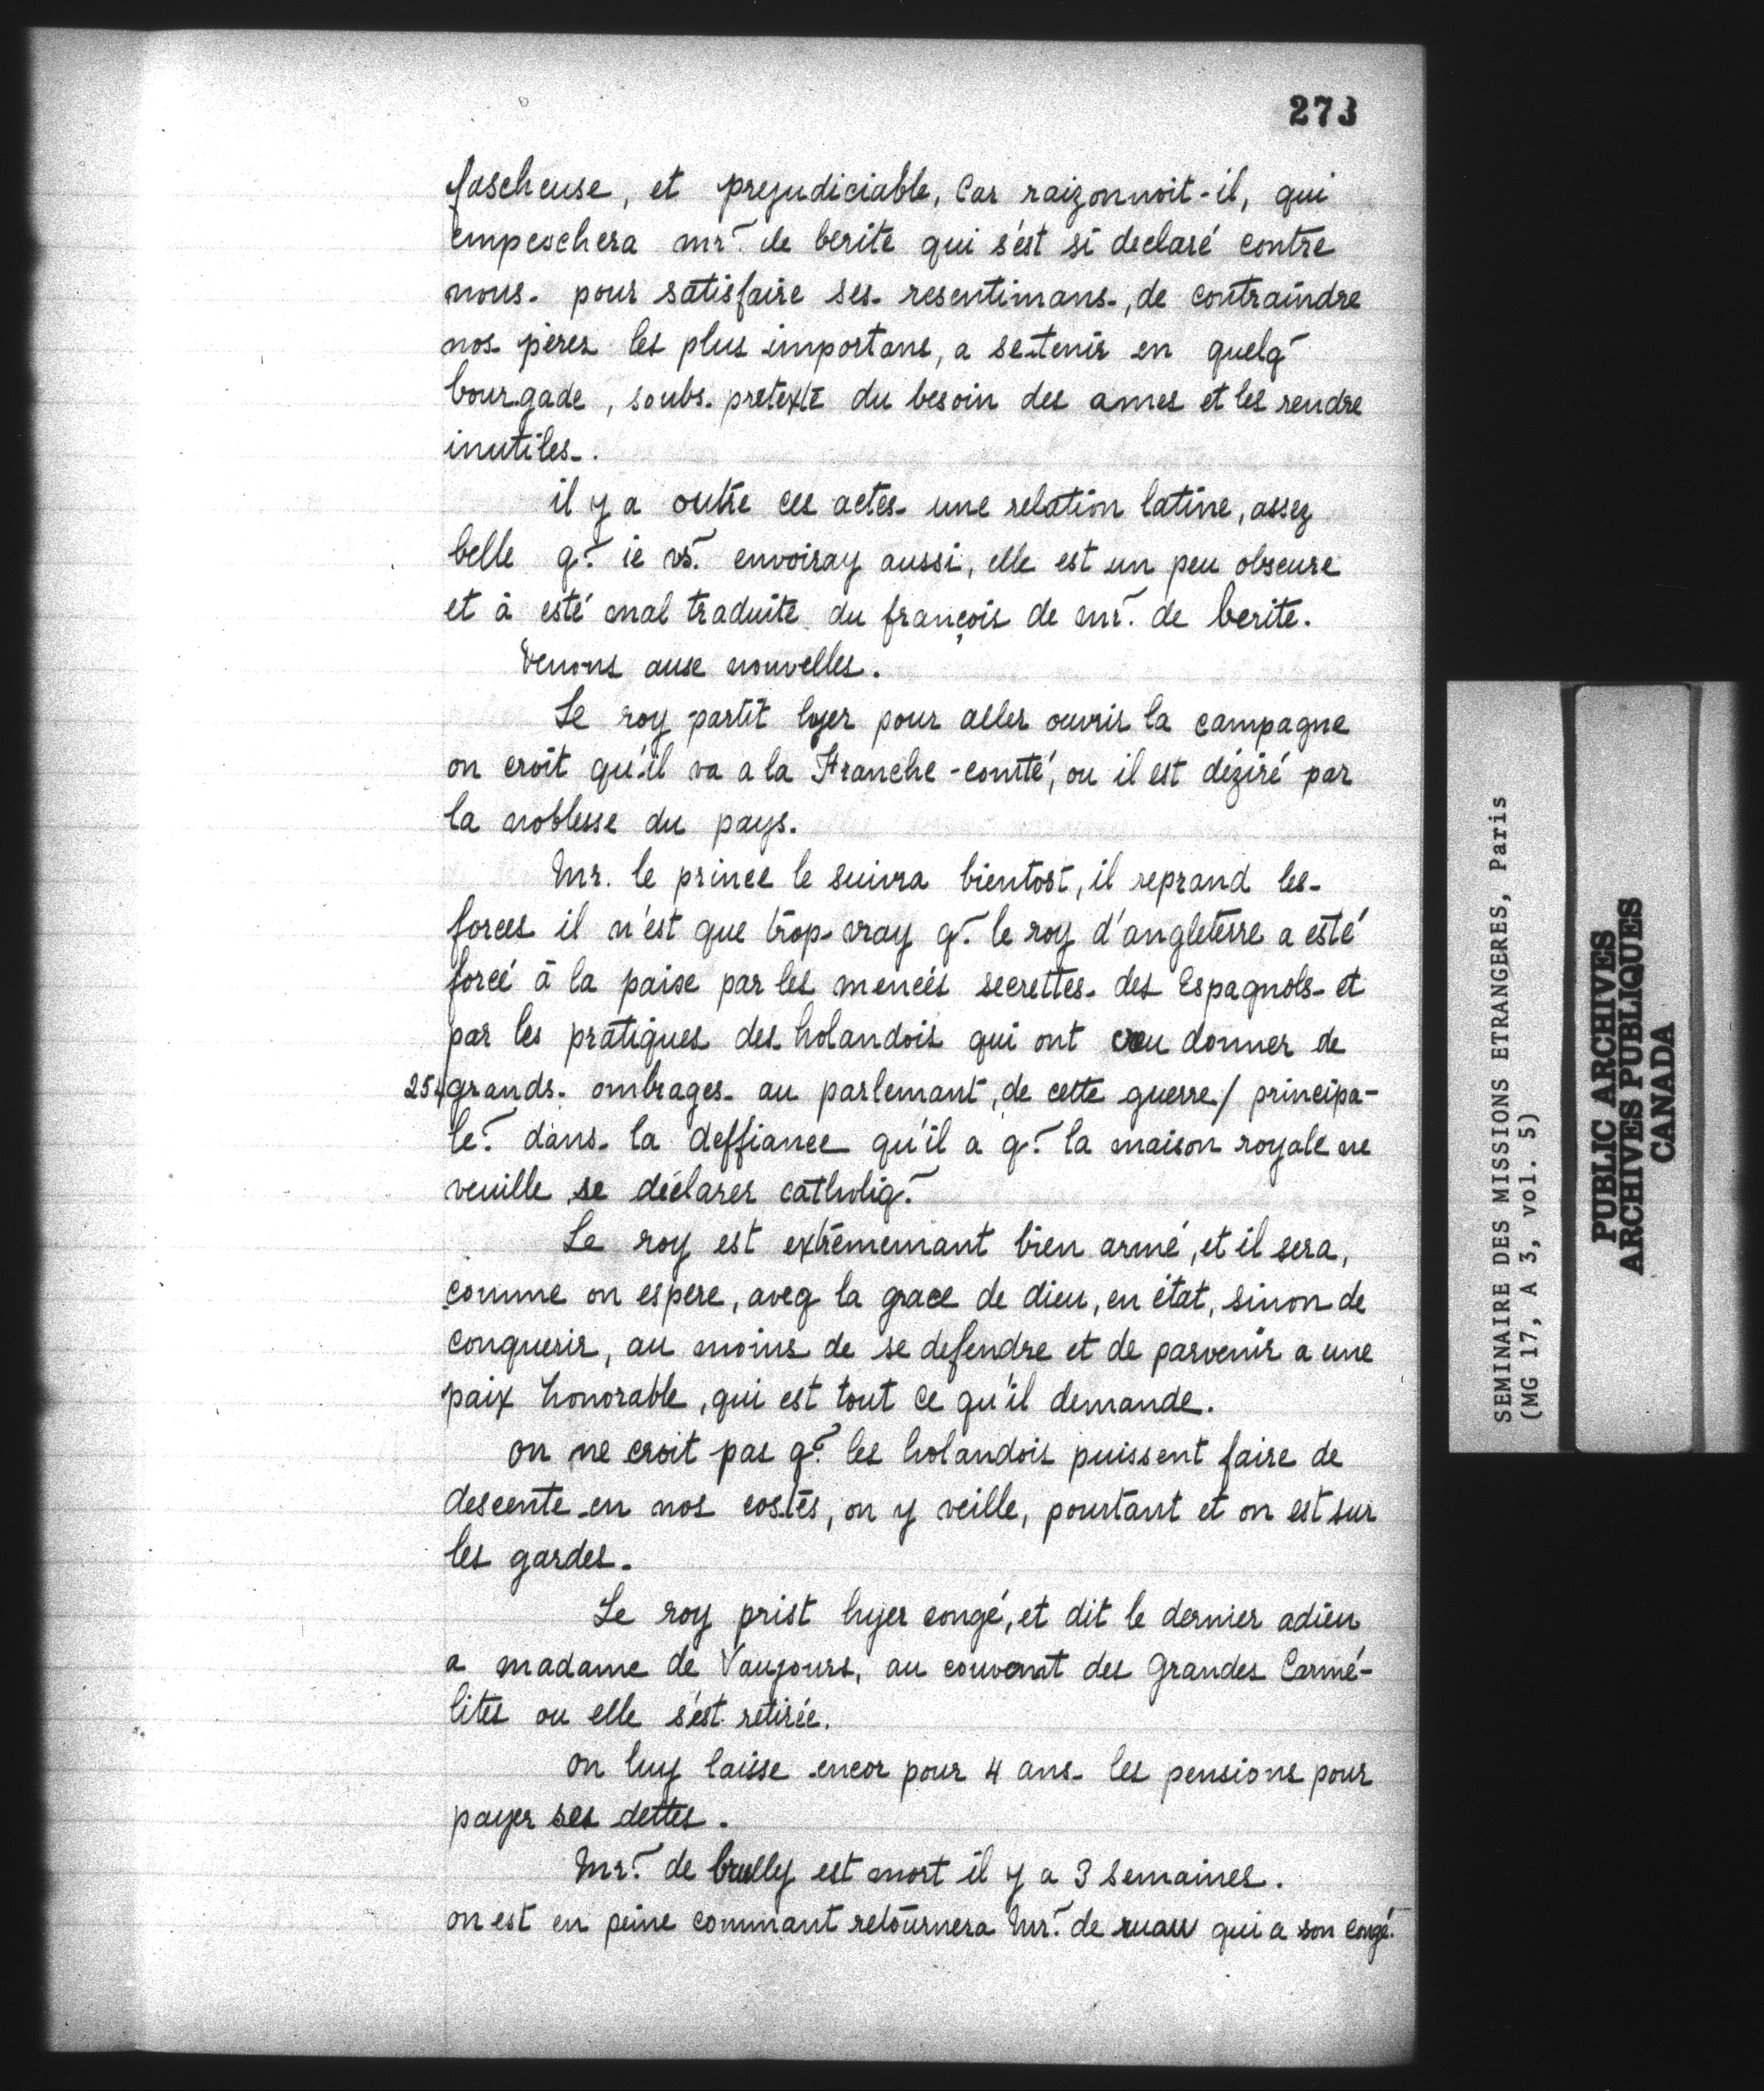 273
fascheuse, et prejudiciable, Car raizonnoit-il, qui
empeschera mr. de berite qui s'est si declaré contre
nous. pour satisfaire ses resentimans, de contraindre
nos peres les plus importans, a se tenir en quelq
bourgade, soubs pretexte du besoin des ames et les rendre
inutiles.
il y a outre ces actes une relation latine, assez
belle q. ie vs. envoiray aussi, elle est un peu obscure
et à esté mal traduite du françois de mr. de berite.
Venons aux nouvelles.
Le roy partit hyer pour aller ouvrir la campagne
on croit qu'il va a la Franche-comté, ou il est déziré par
la noblesse du pays.
Mr. le prince le suivra bientost, il reprand les
forces il n'est que trop vray q. le roy d'angleterre a esté
forcé à la paix par les menées secrettes des Espagnols et
par les pratiques des holandois qui ont creu donner de
254 grands ombrages au parlemant, de cette guerre / principa-
le. dans la deffiance qu'il a q. la maison royale ne
veuille se déclarer catholiq.
Le roy est extrêmemant bien armé, et il sera,
comme on espere, aveq la grace de dieu, en état, sinon de
conquerir, au moins de se defendre et de parvenir a une
paix honorable, qui est tout ce qu'il demande.
on ne croit pas q. les holandois puissent faire de
descente en nos costes, on y veille, pourtant et on est sur
les gardes.
Le roy prist hyer congé, et dit le dernier adieu
a madame de Vaujours, au couvent des Grandes Carmé-
lites ou elle s'est retirée.
on luy laisse encor pour 4 ans les pensions pour
payer ses dettes.
Mr. de brully est mort il y a 3 semaines.
on est en peine commant retournera Mr. de ruau qui a son congé.
SEMINAIRE DES MISSIONS ETRANGERES, Paris
(MG 17, A 3, vol. 5)
PUBLIC ARCHIVES
ARCHIVES PUBLIQUES
CANADA